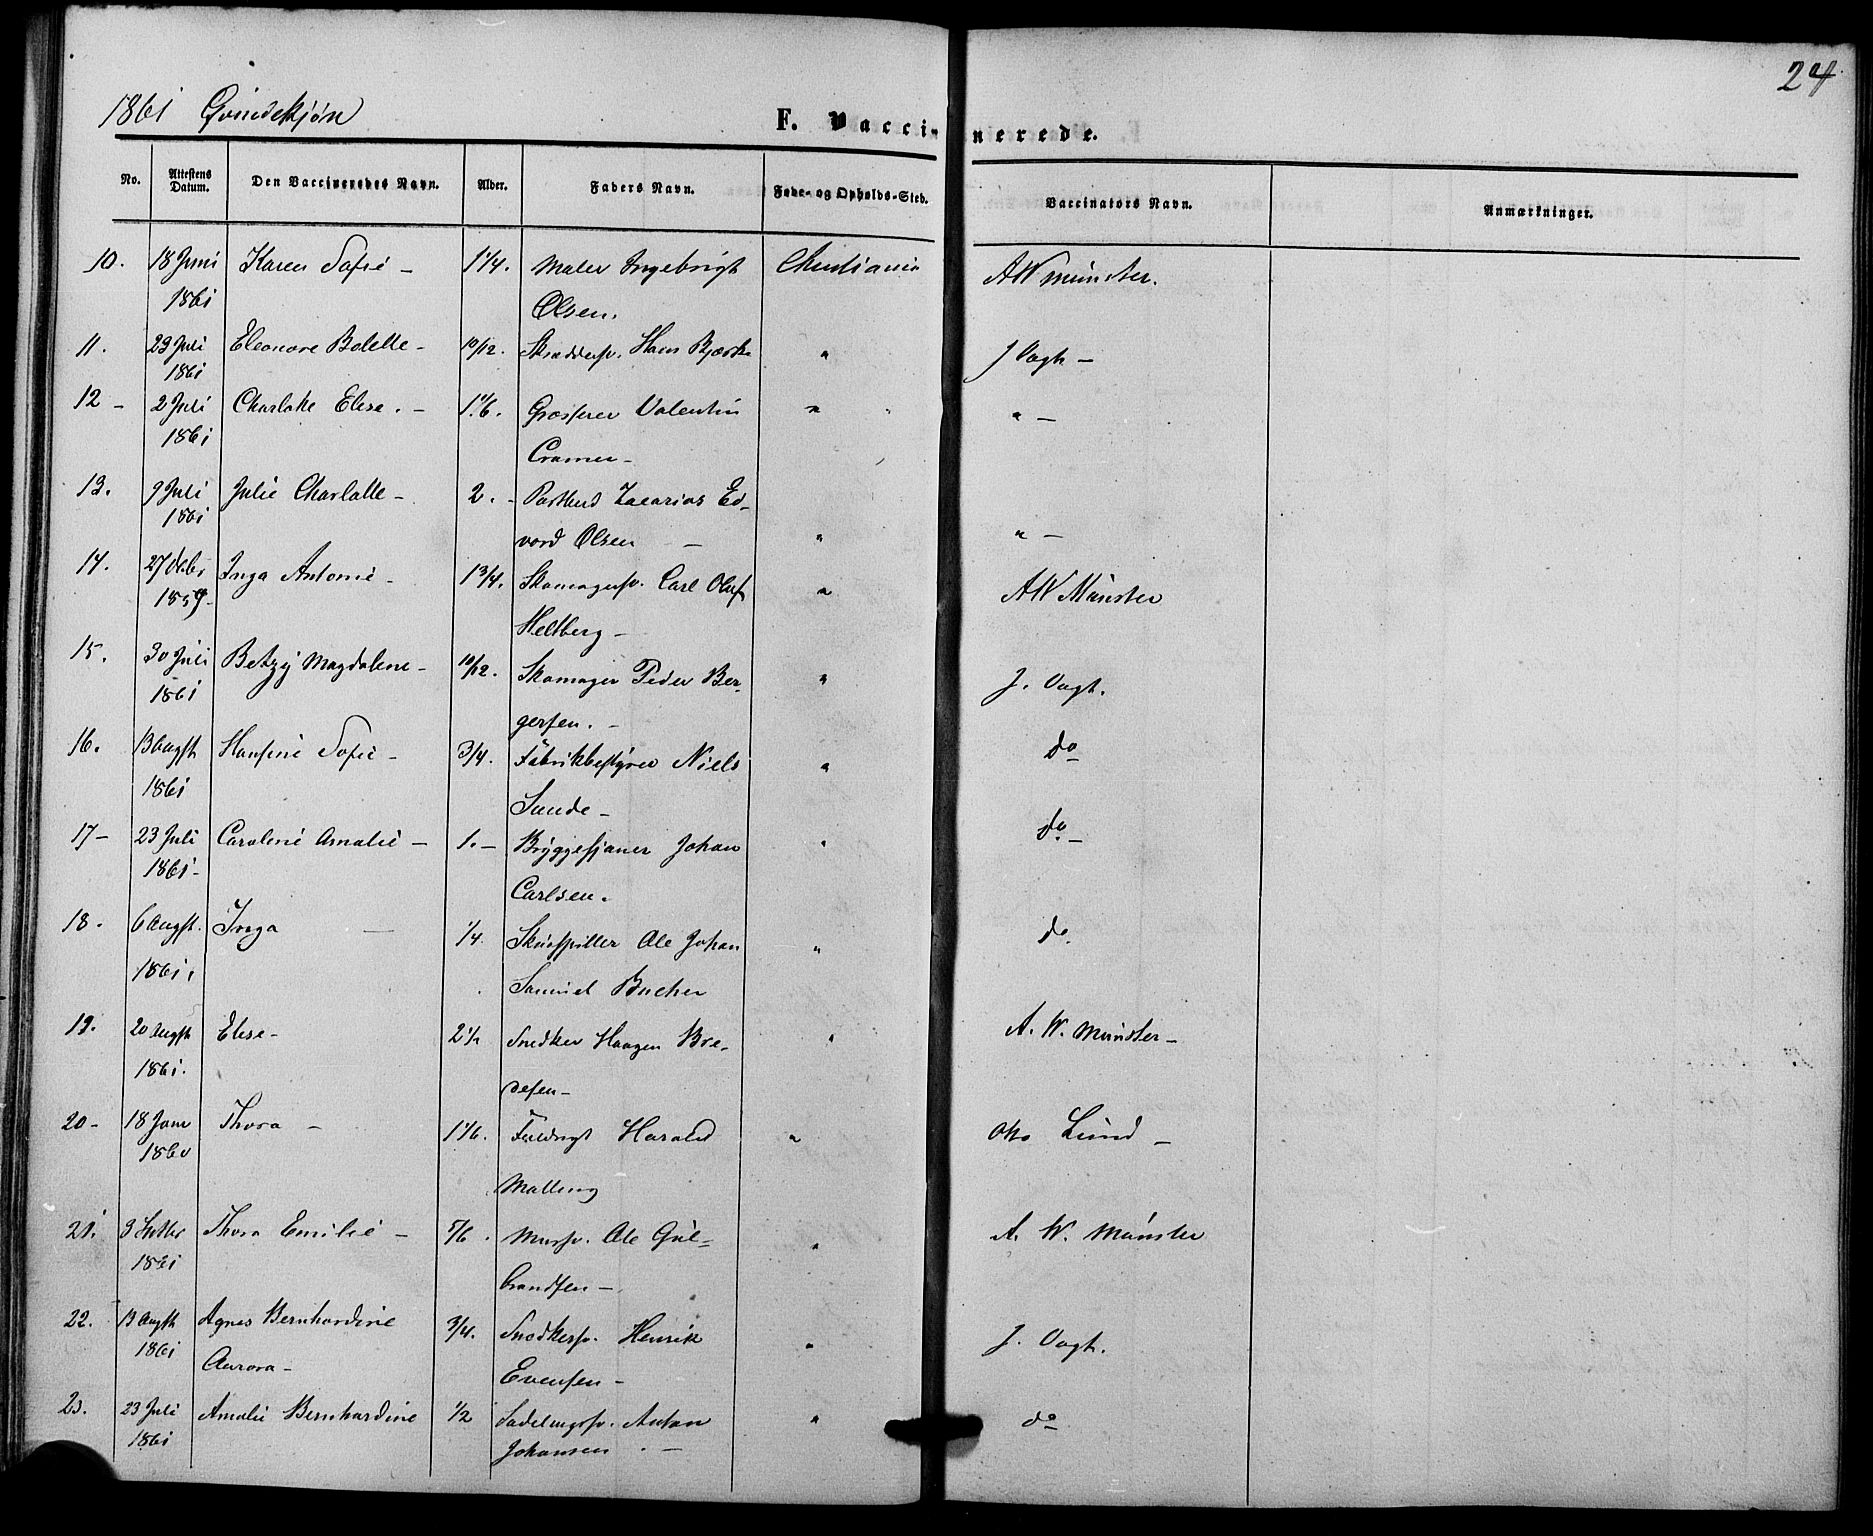 24
1861 Qvindekjøn
F. Vaccinerede.
No. Attestens Datum. Den Vaccineredes Navn. Alder. Faders Navn. Føde- og Opholds-Sted. Vaccinators Navn. Anmærkninger.
10. 18 Juni Karen Sofie – 1 1/4. Maler Ingebrigt Christiania AW Münster.
1861 Olsen.
11. 23 Juli Eleonore Bolette – 10/12. Skræddersv. Hans Bjørk " J Vogt –
1861
12 – 2 Juli Charlotte Elise. – 1 1/6. Grosserer Valentin " " –
1861 Cramer –
13. 9 Juli Julie Charlotte – 2. – Postbud Zacarias Ed-
1861 vard Olsen – " " –
14. 27 Octbr Inga Antonie – 1 3/4. Skomagersv. Carl Oluf " AW Münster
1859 Heltberg –
15. 30 Juli Betzy Magdalene – 10/12. Skomager Peder Ber- " J. Vogt.
1861 gersen. –
16. 13 Augst Hansine Sofie – 3/4. Fabrikbestyrer Niels " do
1861 Sande –
17 – 23 Juli Caroline Amalie – 1. – Bryggesjauer Johan " do –
1861 – Carlsen.
18. 6 Augst. Inga – 1/4. Skuespiller Ole Johan " do.
1861. Samuel Bucher
19. 20 Augst Elise – 2 1/2 Snedker Haagen Bre- " A. W. Münster –
1861. desen –
20 – 18 Janu Thora – 1 1/6. Fuldmgt Harald " Otto Lund –
1860 Malling
21. 3 Septbr Thora Emilie – 5/6. Mursv. Ole Gul- " A. W. Münster
1861 brandsen –
22. 13 Augst Agnes Bernhardine 3/4. Snedkersv. Henrik " J. Vogt.
1861 Aurora – Evensen –
23. 23 Juli Amalie Bernhardine 1/2 Sadelmagsv. Anton " do
1861 Johansen. –